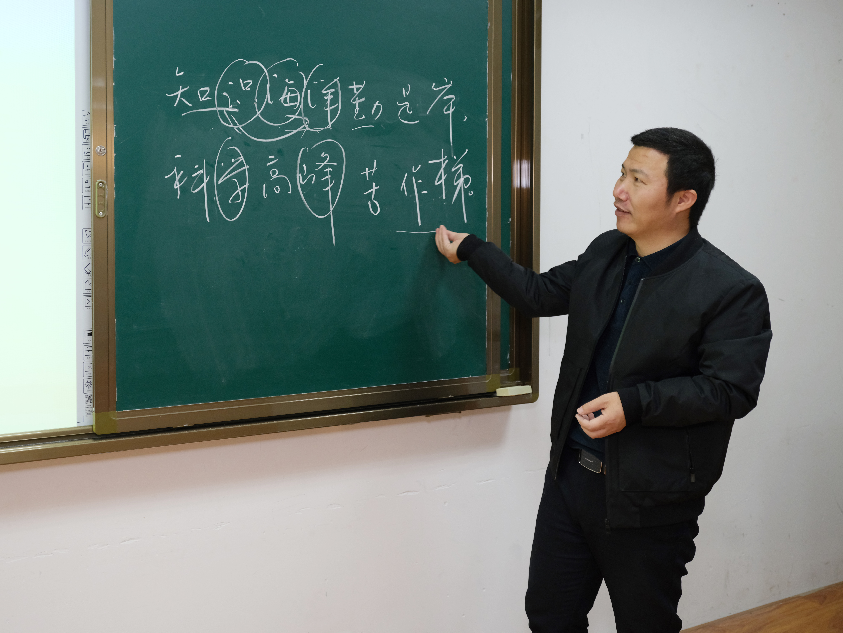 知识海洋勤是岸,
科学高峰苦作梯。